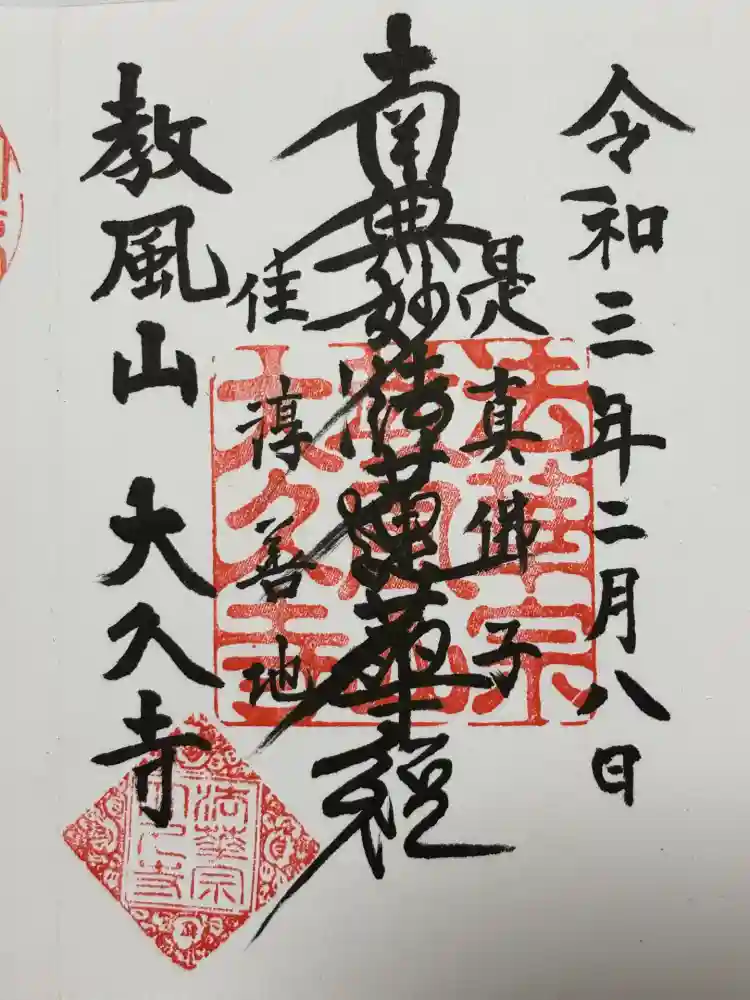 令和三年二月八日
是真佛子
南無妙法蓮華経
住淳善地
教風山 大久寺
法華宗
教風山
大久寺
法華宗
大久寺